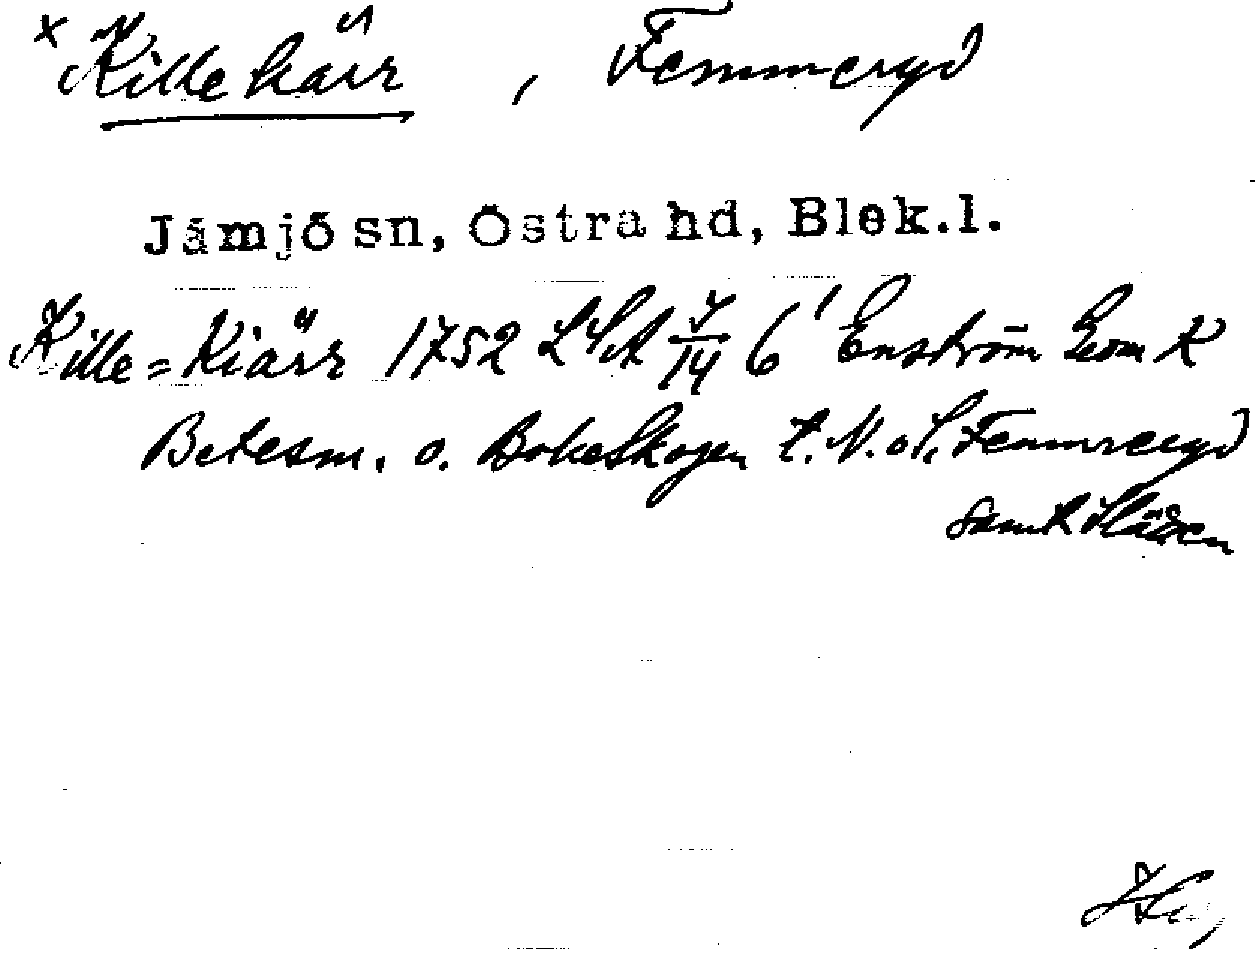 x Killekärr, Femmeryd
Jämjö sn, Östra hd, Blek.l.
Kille=Kiärr 1752 LSA 6¹ Enström Geom K
Betesm. o. Bokeskogen t. N. o S. Femmeryd
samt